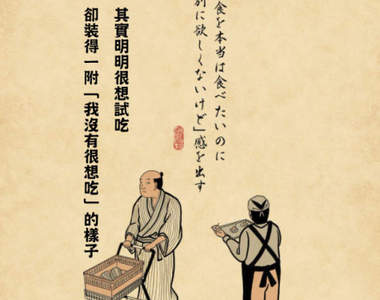 食を本当は食べたいのに
別に欲しくないけど」感を出す
其實明明很想試吃
卻裝得一附「我沒有很想吃」的樣子